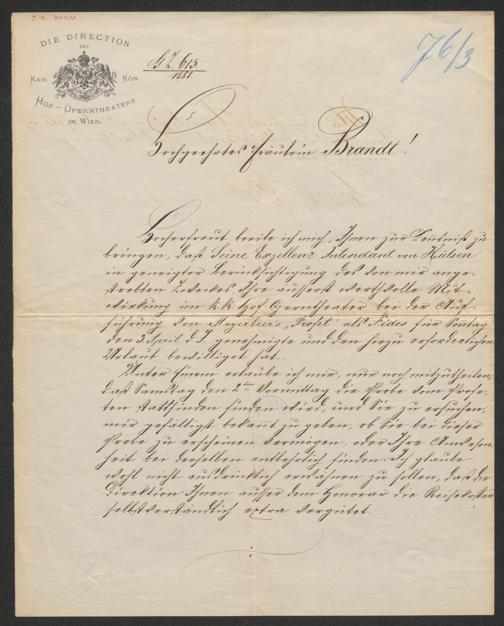 DIE DIRECTION
DES
KAIS. KÖN.
HOF-OPERNTHEATERS
IN WIEN.
G.Z. 613
1881.
76/3
Hochgeehrtes Fräulein Brandt!
Hocherfreut beeile ich mich, Ihnen zur Kentniß zu
bringen, daß Seine Exzellenz Intendant von Hülsen
in geneigter Berücksichtigung des von mir ange-
strebten Zweckes Ihre äusserst werthvolle Mit-
wirkung im kk Hof Operntheater bei der Auf-
führung von Mayerbeers, Profet als Fides für
den April d. J. genehmigte und den hiezu erforderlichen
Urlaub bewilliget hat.
Unter Einem erlaube ich mir, nur noch mitzutheilen,
daß Samstag den 2ten Vormittag die Probe vom Profe-
ten stattfinden wird, und Sie zu ersuchen,
mir gefälligst bekant zu geben, ob Sie bei dieser
Probe zu erscheinen vermögen, oder Ihre Anwesen-
heit bei derselben entbehrlich finden. Ich glaube
wohl nicht ausdrücklich erwähnen zu sollen, daß die
Direktion Ihnen ausser dem Honorar die Reisekosten
selbstverständlich extra vergütet.